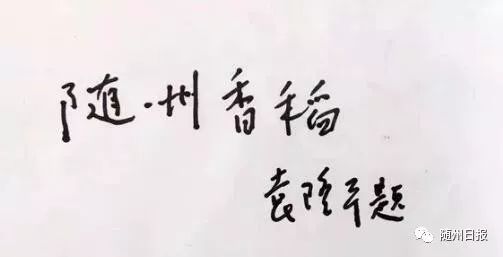 随州香稻
袁隆平题
随州日报